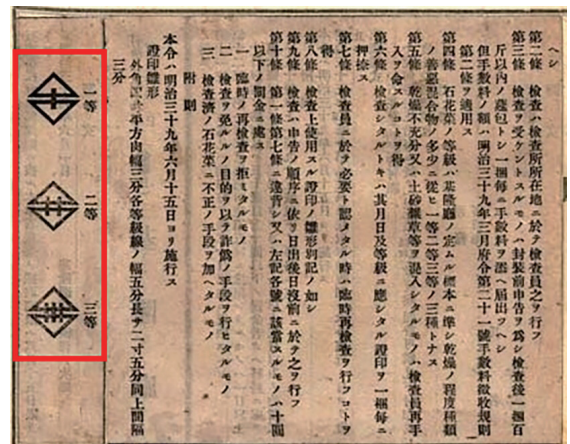 ヘシ
第二條 檢査ハ檢査所所在地ニ於テ檢査員之ヲ行フ
第三條 檢査ヲ受ケントスルモノハ封裝前申告ヲ爲シ檢査後一梱百
斤以內ノ蓆包トシ一梱每ニ手數料ヲ添ヘ屆出ツヘシ
但手數料ノ額ハ明治三十九年三月府令第二十一號手數料徵收規則
第二條ヲ適用ス
第四條 石花菜ノ等級ハ基隆廳ノ定ムル標本ニ準シ乾燥ノ程度種類
ノ善惡混合物ノ多少ニ從ヒ一等二等三等ノ三種トナス
第五條 乾燥不充分又ハ土砂雜草等ヲ混入シタルモノハ檢査員再手
入ヲ命スルコトヲ得
第六條 檢査シタルトキハ其月日及等級ニ應シタル證印ヲ一梱每ニ
押捺ス
第七條 檢査員ニ於テ必要ト認メタル時ハ臨時再檢査ヲ行フコトヲ
得
第八條 檢査上使用スル證印ノ雛形別記ノ如シ
第九條 檢査ハ申告ノ順序ニ依リ日出後日沒前ニ於テ之ヲ行フ
第十條 第一條第七條ニ違背シ又ハ左記各號ニ該當スルモノハ十圓
以下ノ罰金ニ處ス
一 臨時ノ再檢査ヲ拒ミタルモノ
二 檢査ヲ免ルルノ目的ヲ以テ詐僞ノ手段ヲ行ヒタルモノ
三 檢査濟ノ石花菜ニ不正ノ手段ヲ加ヘタルモノ
附則
本令ハ明治三十九年六月十五日ヨリ施行ス
證印雛形
外角四寸平方內幅三分各等級線ノ幅五分長サ二寸五分同上間隔
三分
一等
二等
三等